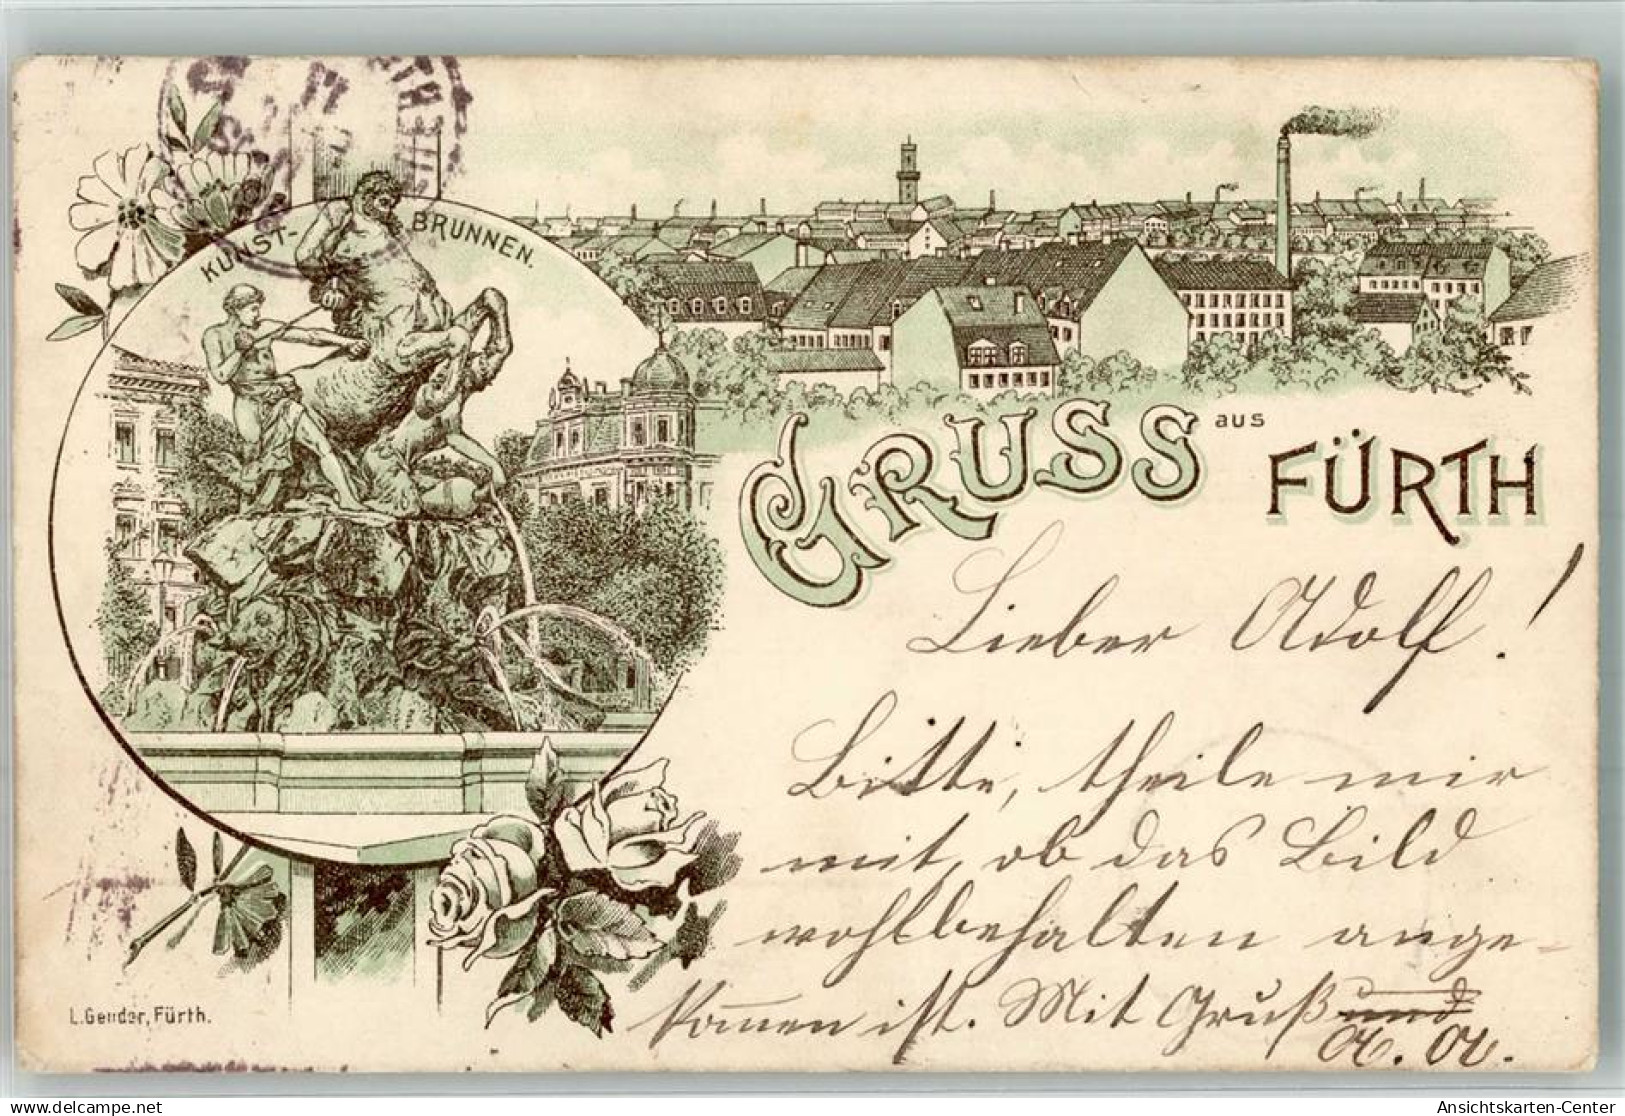 KUNST-BRUNNEN.
GRUSS aus FÜRTH
Lieber Adolf!
Bitte, theile mir
mit, ob das Bild
wohlbehalten ange-
kom̅en ist. Mit Gruß und
L. Gender, Fürth.
delcampe.net
Ansichtskarten-Center